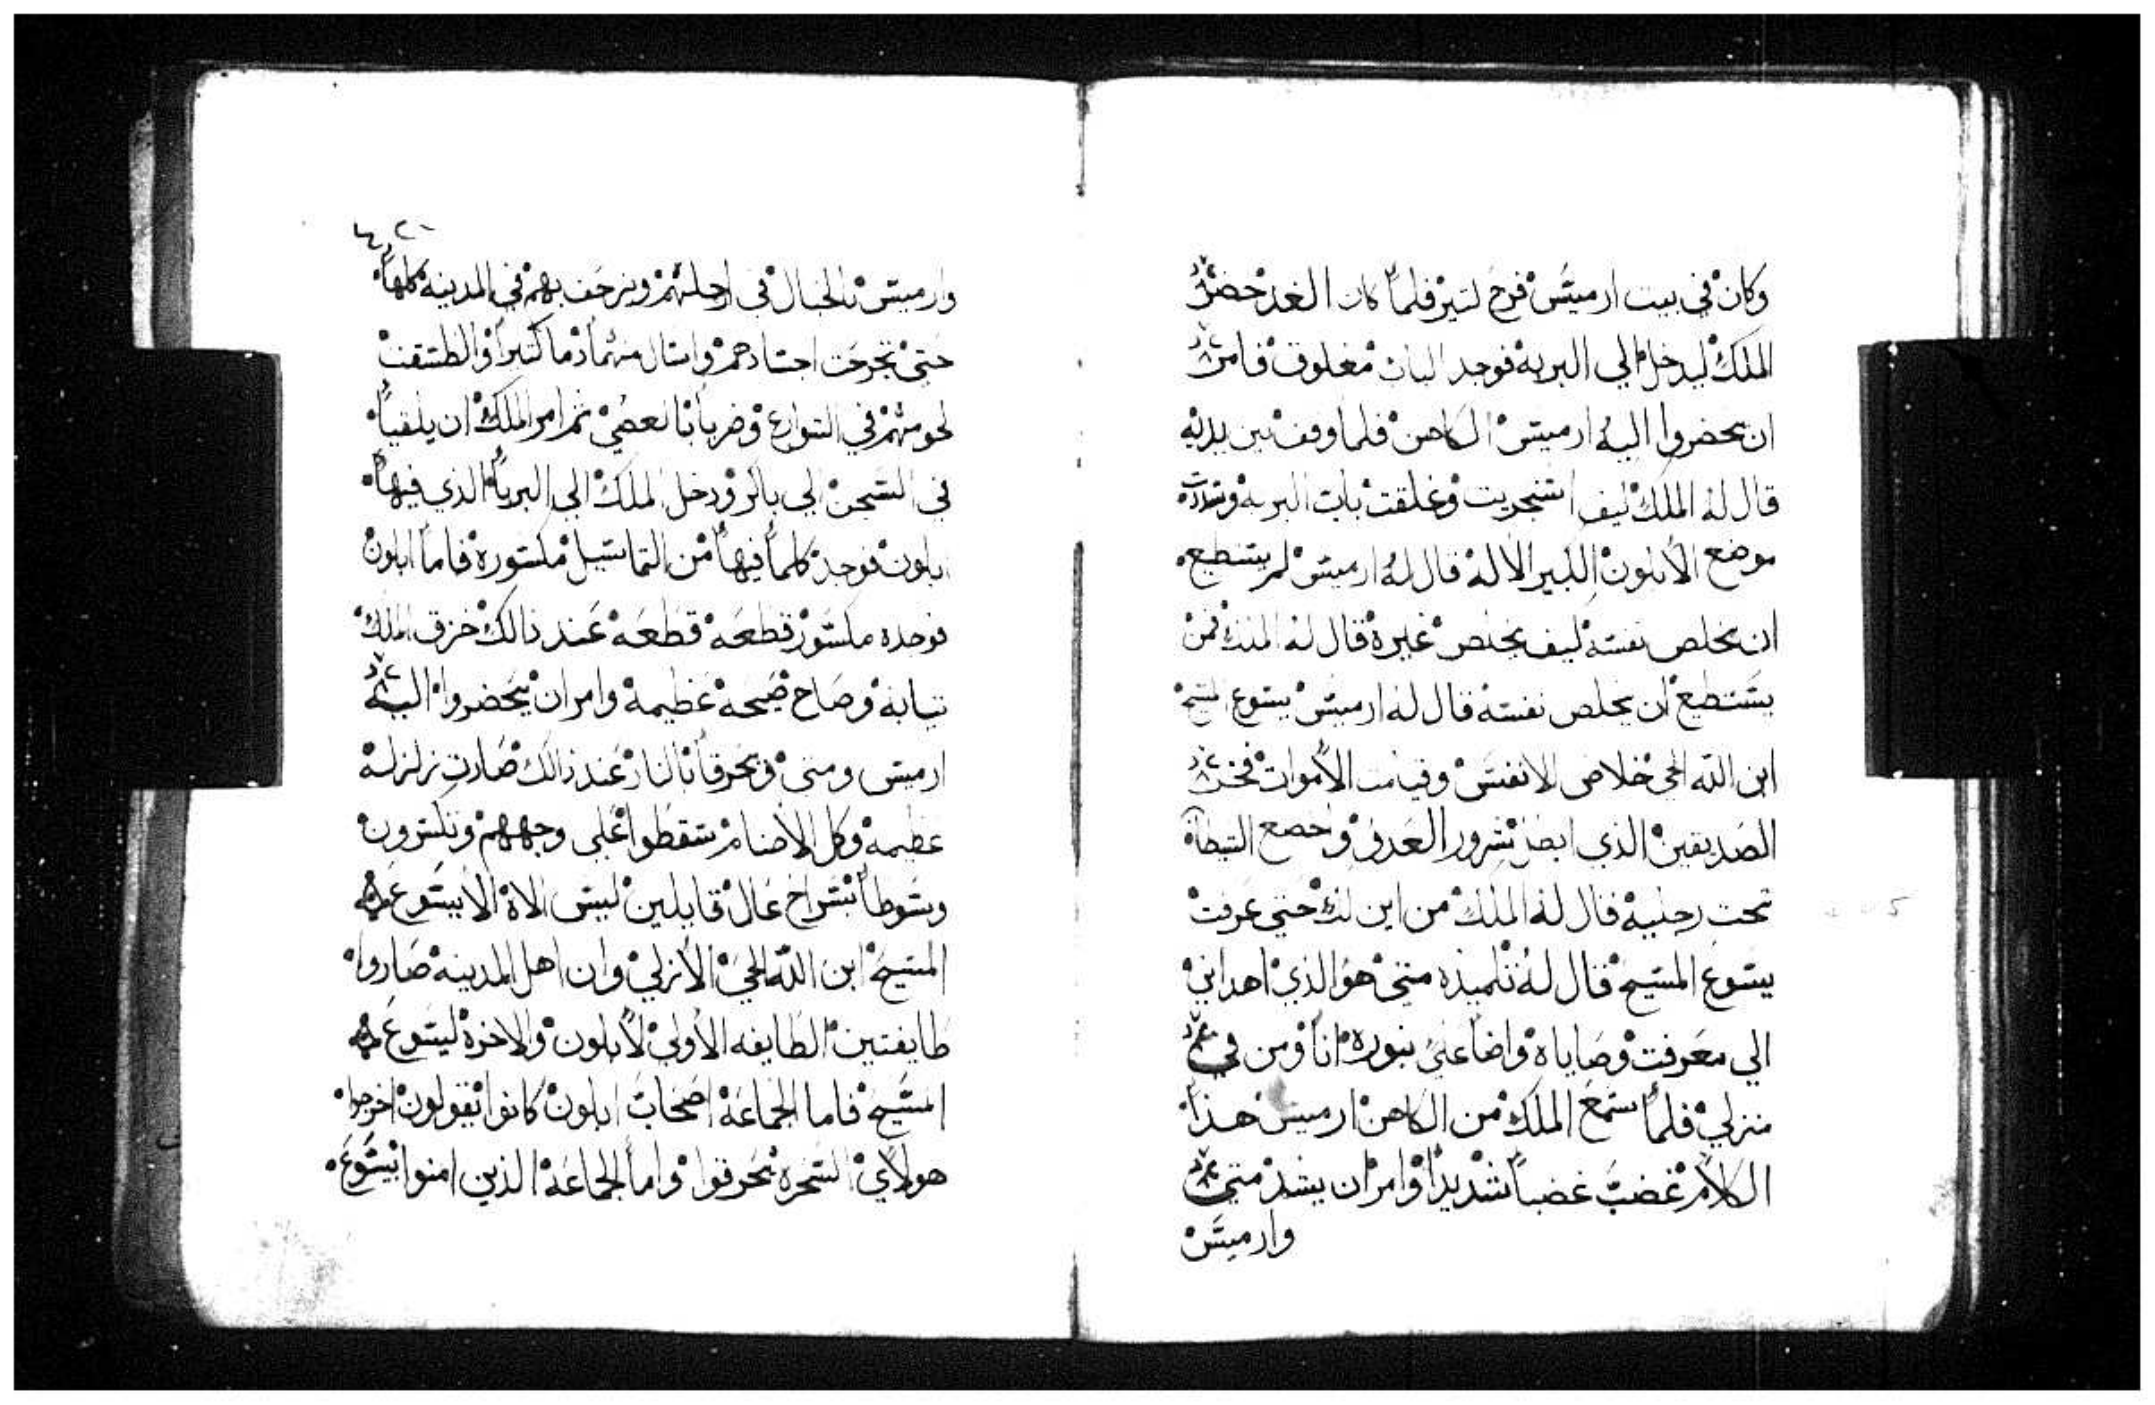 وكان في بيت ارميس فرح كبير فلما كان الغد حضر
الملك ليدخل الي البربه فوجد الباب مغلوق فامر
ان يحضروا اليه ارميس الكاهن فلما وقف بين يديه
قال له الملك كيف استجريت وغلقت باب البربه
موضع الابلون الكبير الاله قال له ارميس لم يستطيع
ان يخلص نفسه كيف يخلص غيره قال له الملك فمن
يستطيع ان يخلص نفسه قال له ارميس يسوع المسيح
ابن الله الحي خلاص الانفس وقيامت الاموات فخر
الصديقين الذي ابطل شرور العدو واخضع الشيطان
تحت رجليه قال له الملك من اين لك حتي عرفت
يسوع المسيح قال له تلميذه متي هو الذي اهداني
الي معرفت وصاياه واضا علي بنوره انا ومن في
منزلي فلما سمع الملك من الكاهن ارميس هذا
الكلام غضب غضباً شديداً وامر ان يشد متي
وارميس
٢١
وارميس بالحبال في ارجلهم ويزحف بهم في المدينه كلها
حتي تجرحت اجسادهم واسال منهما دما كثيرا والطشقت
لحومهم في الشوارع وضربا بالعصي ثم امر الملك ان يلقيا
في السجن الي باكر ودخل الملك الي البربا الذي فيها
ابلون فوجد كلما فيها من التماسيل مكسوره فاما ابلون
فوجده مكسور قطعه قطعه عند ذالك خرق الملك
تيابه وصاح صيحه عظيمه وامر ان يحضروا اليه
ارميس ومتي ويحرقا بالنار عند ذالك صارت زلزله
عظيمه وكل الاصنام سقطوا علي وجههم وتكسرون
وسوطا بسراخ عال قايلين ليس الاه الا يسوع
المسيح ابن الله الحي الازلي وان اهل المدينه صاروا
طايفتين الطايفه الاولي لابلون والاخره ليسوع
المسيح فاما الجماعه اصحاب ابلون كانوا يقولون اخرجوا
هولاي السحره يحرقوا واما الجماعه الذين امنوا بيسوع